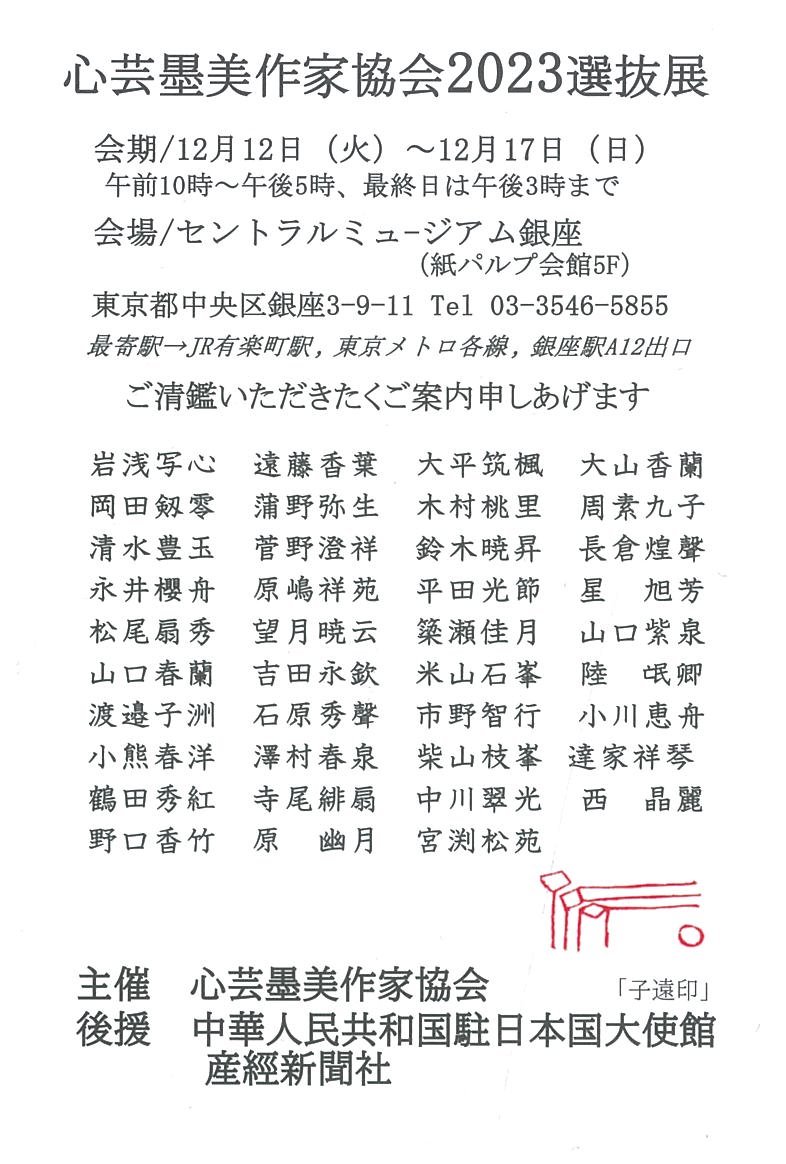 心芸墨美作家協会2023選抜展
会期/12月12日（火）～12月17日（日）
午前10時～午後5時、最終日は午後3時まで
会場/セントラルミュ-ジアム銀座
（紙パルプ会館5F）
東京都中央区銀座3-9-11 Tel 03-3546-5855
最寄駅→JR有楽町駅，東京メトロ各線，銀座駅A12出口
ご清鑑いただきたくご案内申しあげます
岩浅写心　遠藤香葉　大平筑楓　大山香蘭
岡田釼零　蒲野弥生　木村桃里　周素九子
清水豊玉　菅野澄祥　鈴木暁昇　長倉煌聲
永井櫻舟　原嶋祥苑　平田光節　星　旭芳
松尾扇秀　望月暁云　簗瀬佳月　山口紫泉
山口春蘭　吉田永欽　米山石峯　陸　氓卿
渡邉子洲　石原秀聲　市野智行　小川恵舟
小熊春洋　澤村春泉　柴山枝峯　達家祥琴
鶴田秀紅　寺尾緋扇　中川翠光　西　晶麗
野口香竹　原　幽月　宮渕松苑
主催　心芸墨美作家協会　「子遠印」
後援　中華人民共和国駐日本国大使館
産經新聞社